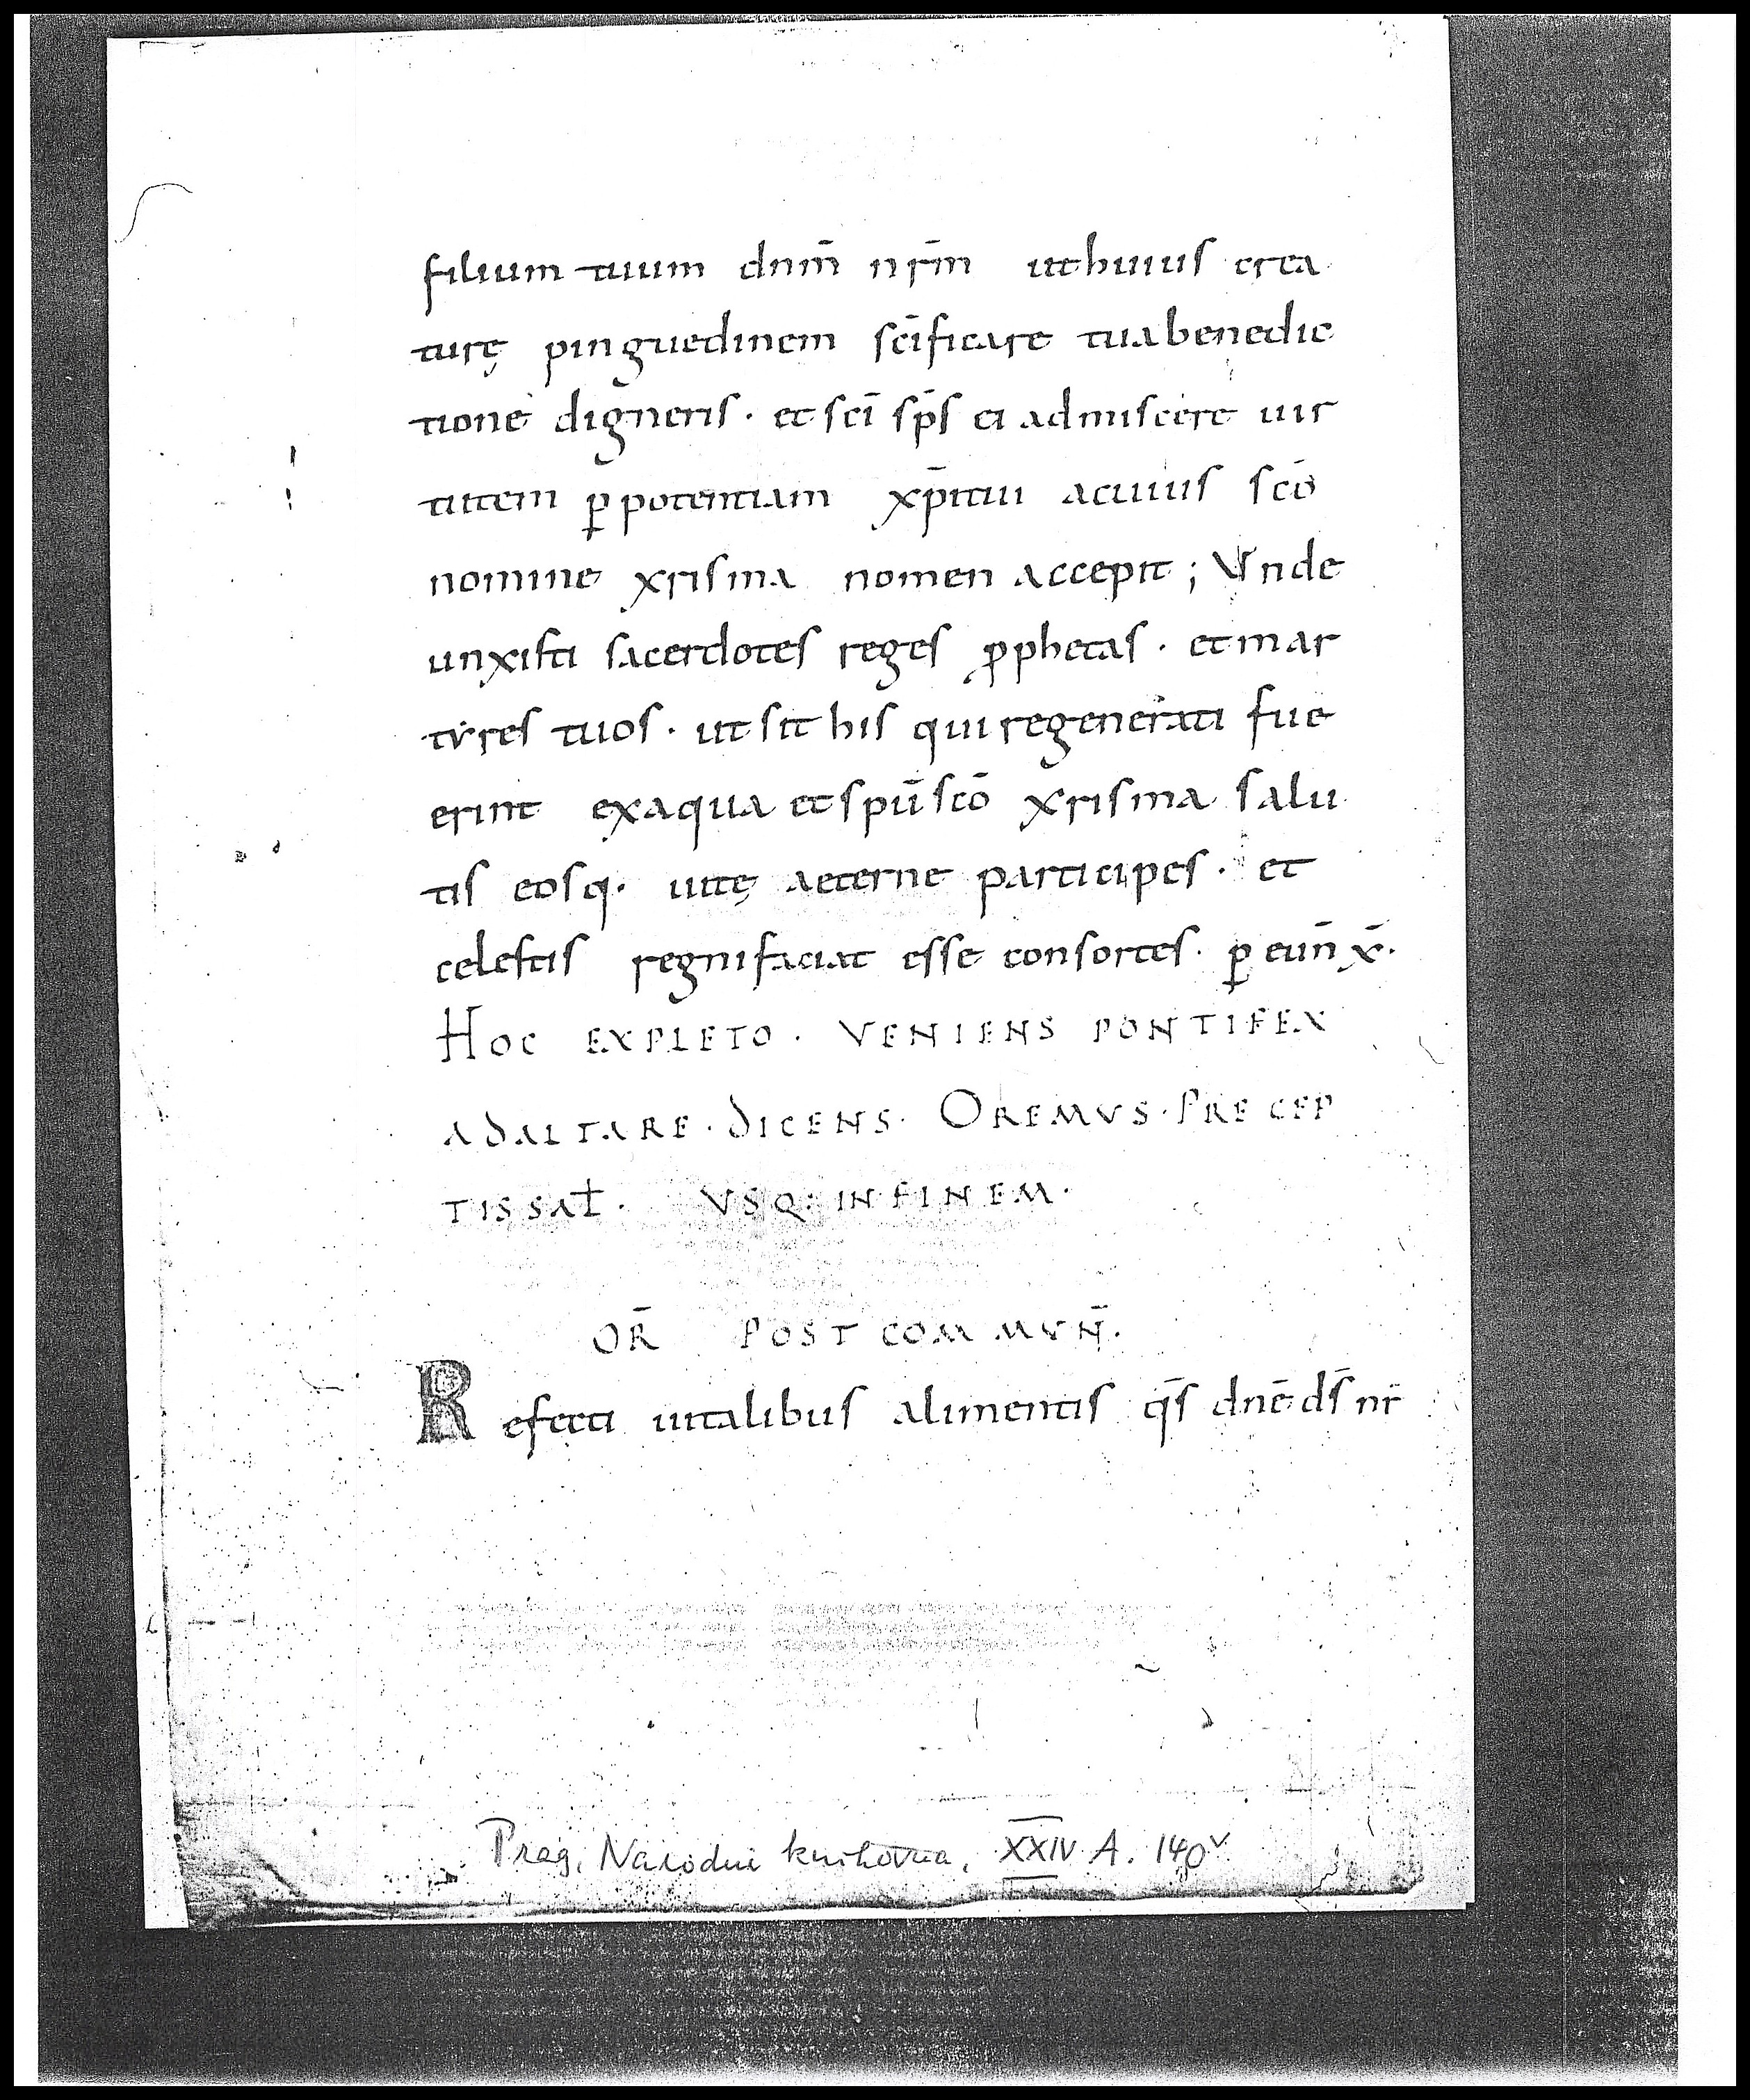 filium tuum dnm̄ nr̄m ut huius crea
turę pinguedinem sc̄ificare tua benedic
tione digneris · et sc̄i sp̄s ei admiscere uir
tutem ꝑ potentiam xp̄i tui a cuius sc̄o
nomine xrisma nomen accepit ; Vnde
unxisti sacerdotes reges ꝓphetas · et mar
tẏres tuos · ut sit his qui regenerati fue
erint ex aqua et spū sc̄o xrisma salu
tis eosq· uitę aeterne participes · et
celestis regni faciat esse consortes · ꝑ eun̄ x̄·
HOC EXPLETO · VENIENS PONTIFEX
AD ALTARE · DICENS · OREMVS · PRECEP
TIS SAꝈ · VSQ: IN FINEM ·
OR̄ POST COMMVN̄ ·
Refecti uitalibus alimentis q̄s dnē ds̄ nr̄
Prag, Narodni knihovna, XXIV A. 140v